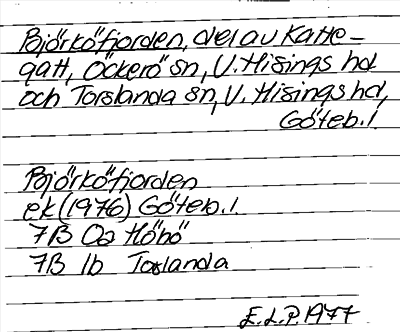 Björköfjorden, del av Katte-
gatt, Öckerö sn, V. Hisings hd
och Torslanda sn, V. Hisings hd,
Göteb. l.
Björköfjorden
ek (1976) Göteb. l.
7B 0a Hönö
7B 1b Torslanda
E.L.P. 1977